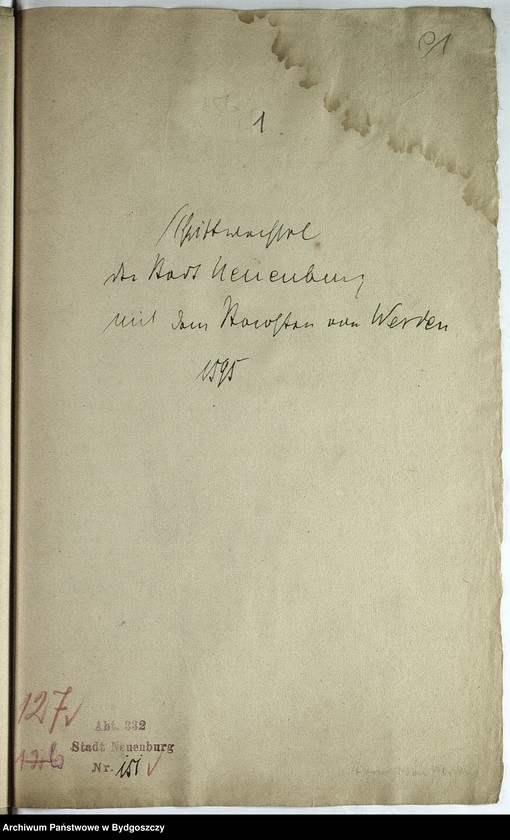 1
1
Schriftwechsel
der Stadt Neuenburg
mit dem Starosten von Werden
1595
127
Abt. 332
126 Stadt Neuenburg
Nr. 151
Archiwum Państwowe w Bydgoszczy